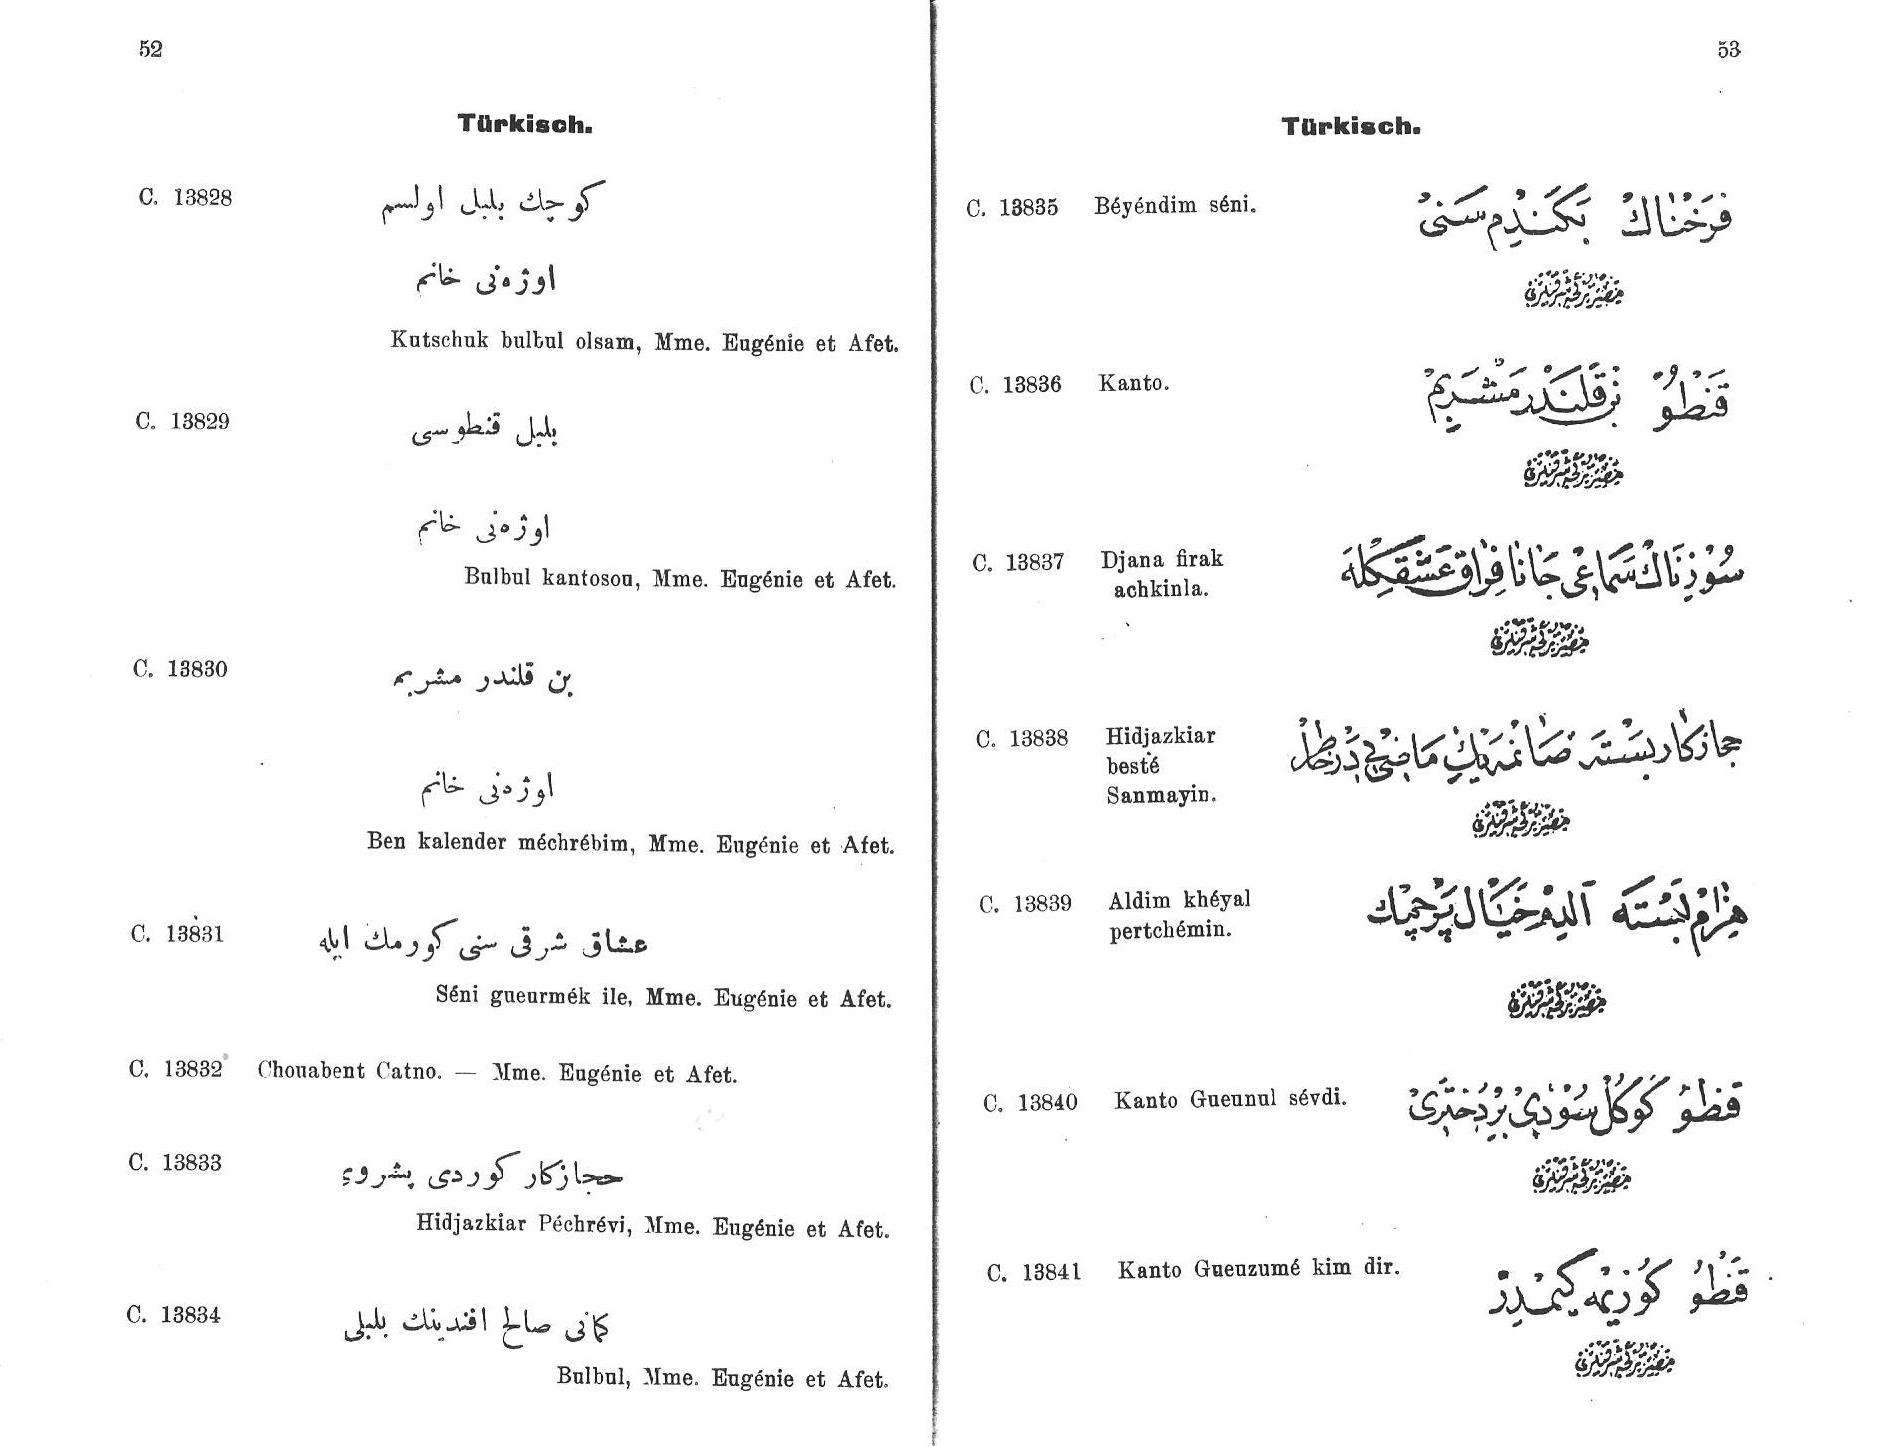 52
Türkisch.
C. 13828
كوچك بلبل اولسم
اوژەنی خانم
Kutschuk bulbul olsam, Mme. Eugénie et Afet.
C. 13829
بلبل قنطوسی
اوژەنی خانم
Bulbul kantosou, Mme. Eugénie et Afet.
C. 13830
بن قلندر مشربم
اوژەنی خانم
Ben kalender méchrébim, Mme. Eugénie et Afet.
C. 13831
عشاق شرقی سنی كورمك ایله
Séni gueurmék ile, Mme. Eugénie et Afet.
C. 13832 Chouabent Catno. — Mme. Eugénie et Afet.
C. 13833
حجازكار كوردی پشروی
Hidjazkiar Péchrévi, Mme. Eugénie et Afet.
C. 13834
كمانی صالح افندینك بلبلی
Bulbul, Mme. Eugénie et Afet.
53
Türkisch.
C. 13835 Béyéndim séni. فرحناك بكندم سنی
C. 13836 Kanto. قنطو بن قلندر مشربم
C. 13837 Djana firak
achkinla.
سوزناك سماعی جانا فراق عشقكله
C. 13838 Hidjazkiar
besté
Sanmayin.
حجازكار بسته
C. 13839 Aldim khéyal
pertchémin.
هزام بسته آلدم خیال پرچمك
C. 13840 Kanto Gueunul sévdi. قنطو كوكل سودی بر دختری
C. 13841 Kanto Gueuzumé kim dir. قنطو كوزیمه كیمدر